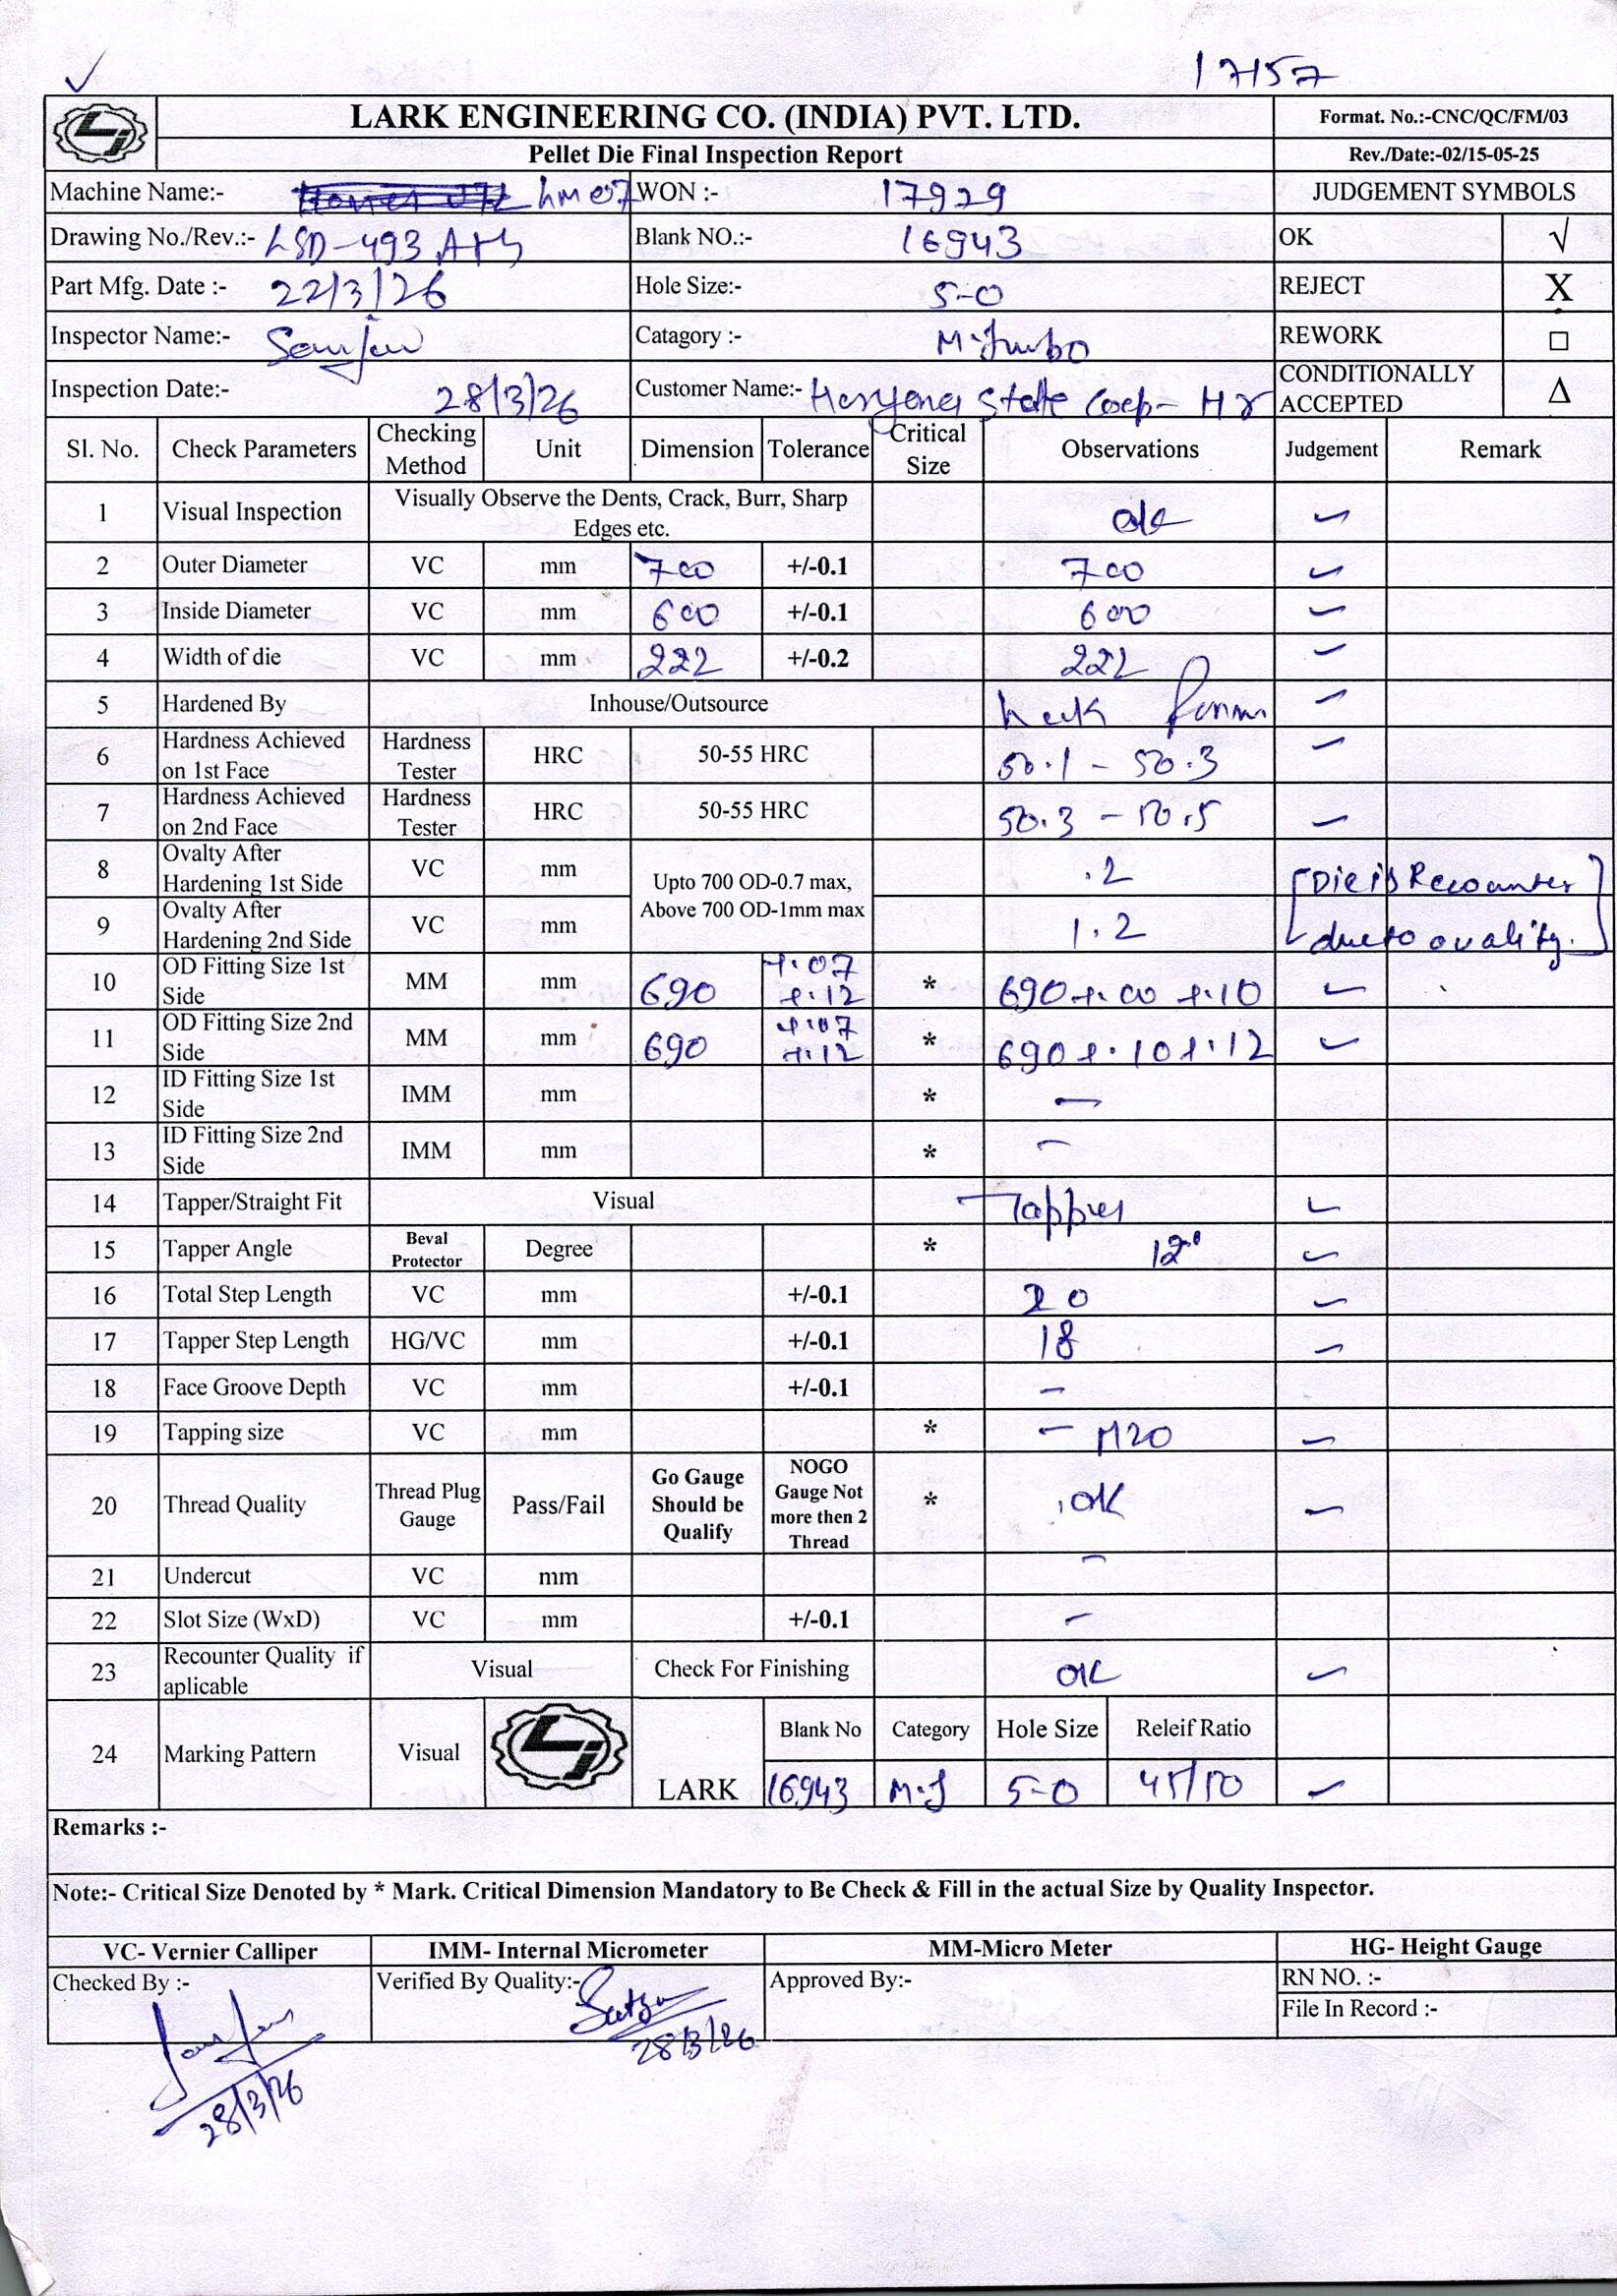 17157
LARK ENGINEERING CO. (INDIA) PVT. LTD. Format. No.:-CNC/QC/FM/03
Pellet Die Final Inspection Report Rev./Date:-02/15-05-25
Machine Name:- LM 07 WON :- 17929 JUDGEMENT SYMBOLS
Drawing No./Rev.:- LSD-493 Blank NO.:- 16943 OK √
Part Mfg. Date :- 22/3/26 Hole Size:- 5-0 REJECT X
Inspector Name:- Catagory :- M-Jumbo REWORK □
Inspection Date:- 28/3/26 Customer Name:- State CONDITIONALLY ACCEPTED Δ
Sl. No. Check Parameters Checking Method Unit Dimension Tolerance Critical Size Observations Judgement Remark
1 Visual Inspection Visually Observe the Dents, Crack, Burr, Sharp Edges etc. ok ✓
2 Outer Diameter VC mm 700 +/-0.1 700 ✓
3 Inside Diameter VC mm 600 +/-0.1 600 ✓
4 Width of die VC mm 222 +/-0.2 222 ✓
5 Hardened By Inhouse/Outsource ✓
6 Hardness Achieved on 1st Face Hardness Tester HRC 50-55 HRC 50.1 - 50.3 ✓
7 Hardness Achieved on 2nd Face Hardness Tester HRC 50-55 HRC 50.3 - 50.5 ✓
8 Ovalty After Hardening 1st Side VC mm Upto 700 OD-0.7 max, Above 700 OD-1mm max .2 [Die is Recounter
9 Ovalty After Hardening 2nd Side VC mm 1.2 due to ovality.]
10 OD Fitting Size 1st Side MM mm 690 +.07 +.12 * 690 +.00 +.10 ✓
11 OD Fitting Size 2nd Side MM mm 690 +.07 +.12 * 690 +.10 +.12 ✓
12 ID Fitting Size 1st Side IMM mm * —
13 ID Fitting Size 2nd Side IMM mm * —
14 Tapper/Straight Fit Visual Tapper ✓
15 Tapper Angle Beval Protector Degree * 12° ✓
16 Total Step Length VC mm +/-0.1 20 ✓
17 Tapper Step Length HG/VC mm +/-0.1 18 ✓
18 Face Groove Depth VC mm +/-0.1 —
19 Tapping size VC mm * — M20 ✓
20 Thread Quality Thread Plug Gauge Pass/Fail Go Gauge Should be Qualify NOGO Gauge Not more then 2 Thread * OK ✓
21 Undercut VC mm —
22 Slot Size (WxD) VC mm +/-0.1 —
23 Recounter Quality if aplicable Visual Check For Finishing OK ✓
24 Marking Pattern Visual LARK Blank No Category Hole Size Releif Ratio
16943 M-J 5-0 45/50 ✓
Remarks :-
Note:- Critical Size Denoted by * Mark. Critical Dimension Mandatory to Be Check & Fill in the actual Size by Quality Inspector.
VC- Vernier Calliper IMM- Internal Micrometer MM-Micro Meter HG- Height Gauge
Checked By :- Verified By Quality:- Approved By:- RN NO. :-
File In Record :-
28/3/26
28/3/26